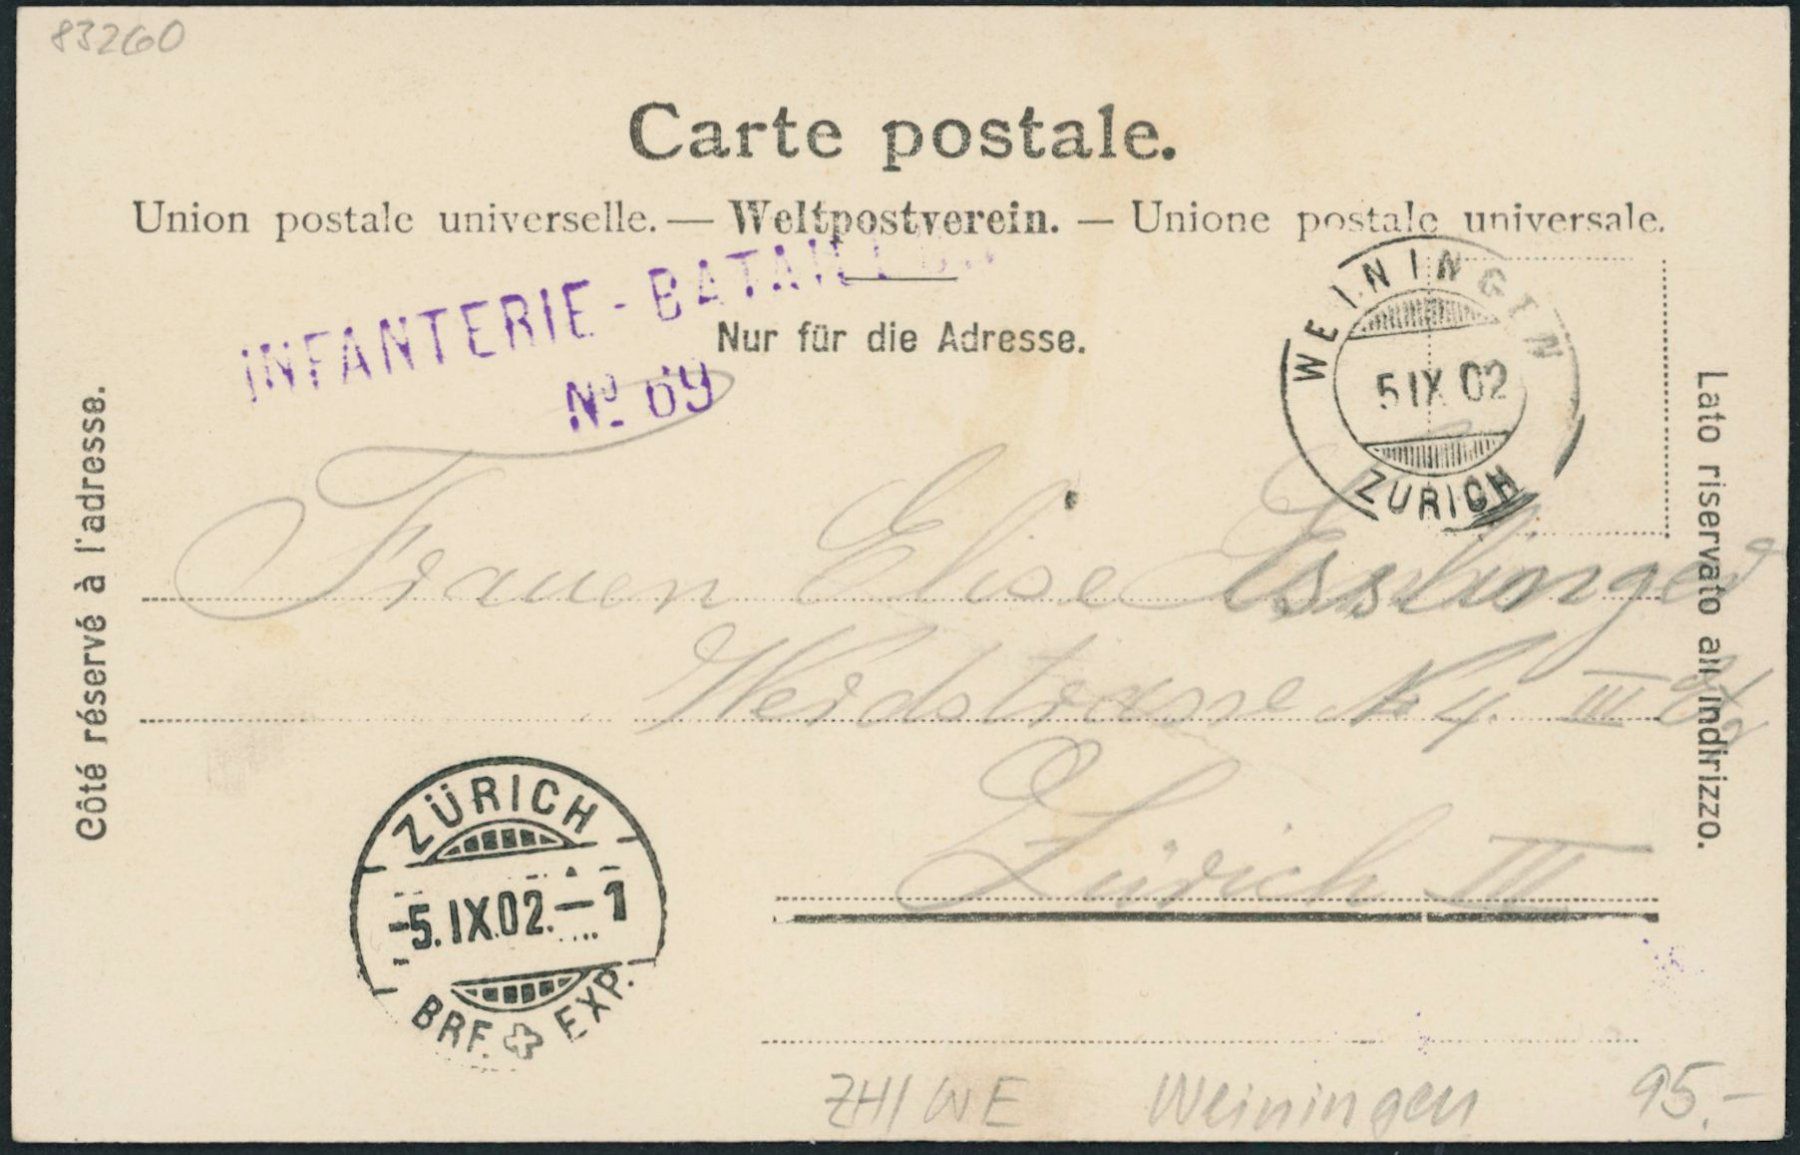 83260
Carte postale.
Union postale universelle. — Weltpostverein. — Unione postale universale.
INFANTERIE - BATAILLON
Nº 69
Nur für die Adresse.
WEININGEN
5 IX 02
ZÜRICH
Côté réservé à l'adresse.
Lato riservato all'indirizzo.
Frauen Elise Esslinger
Werdstrasse № 4. III
Zürich III
ZÜRICH
-5.IX.02.—1
BRF. EXP.
ZH/WE Weiningen 95.-